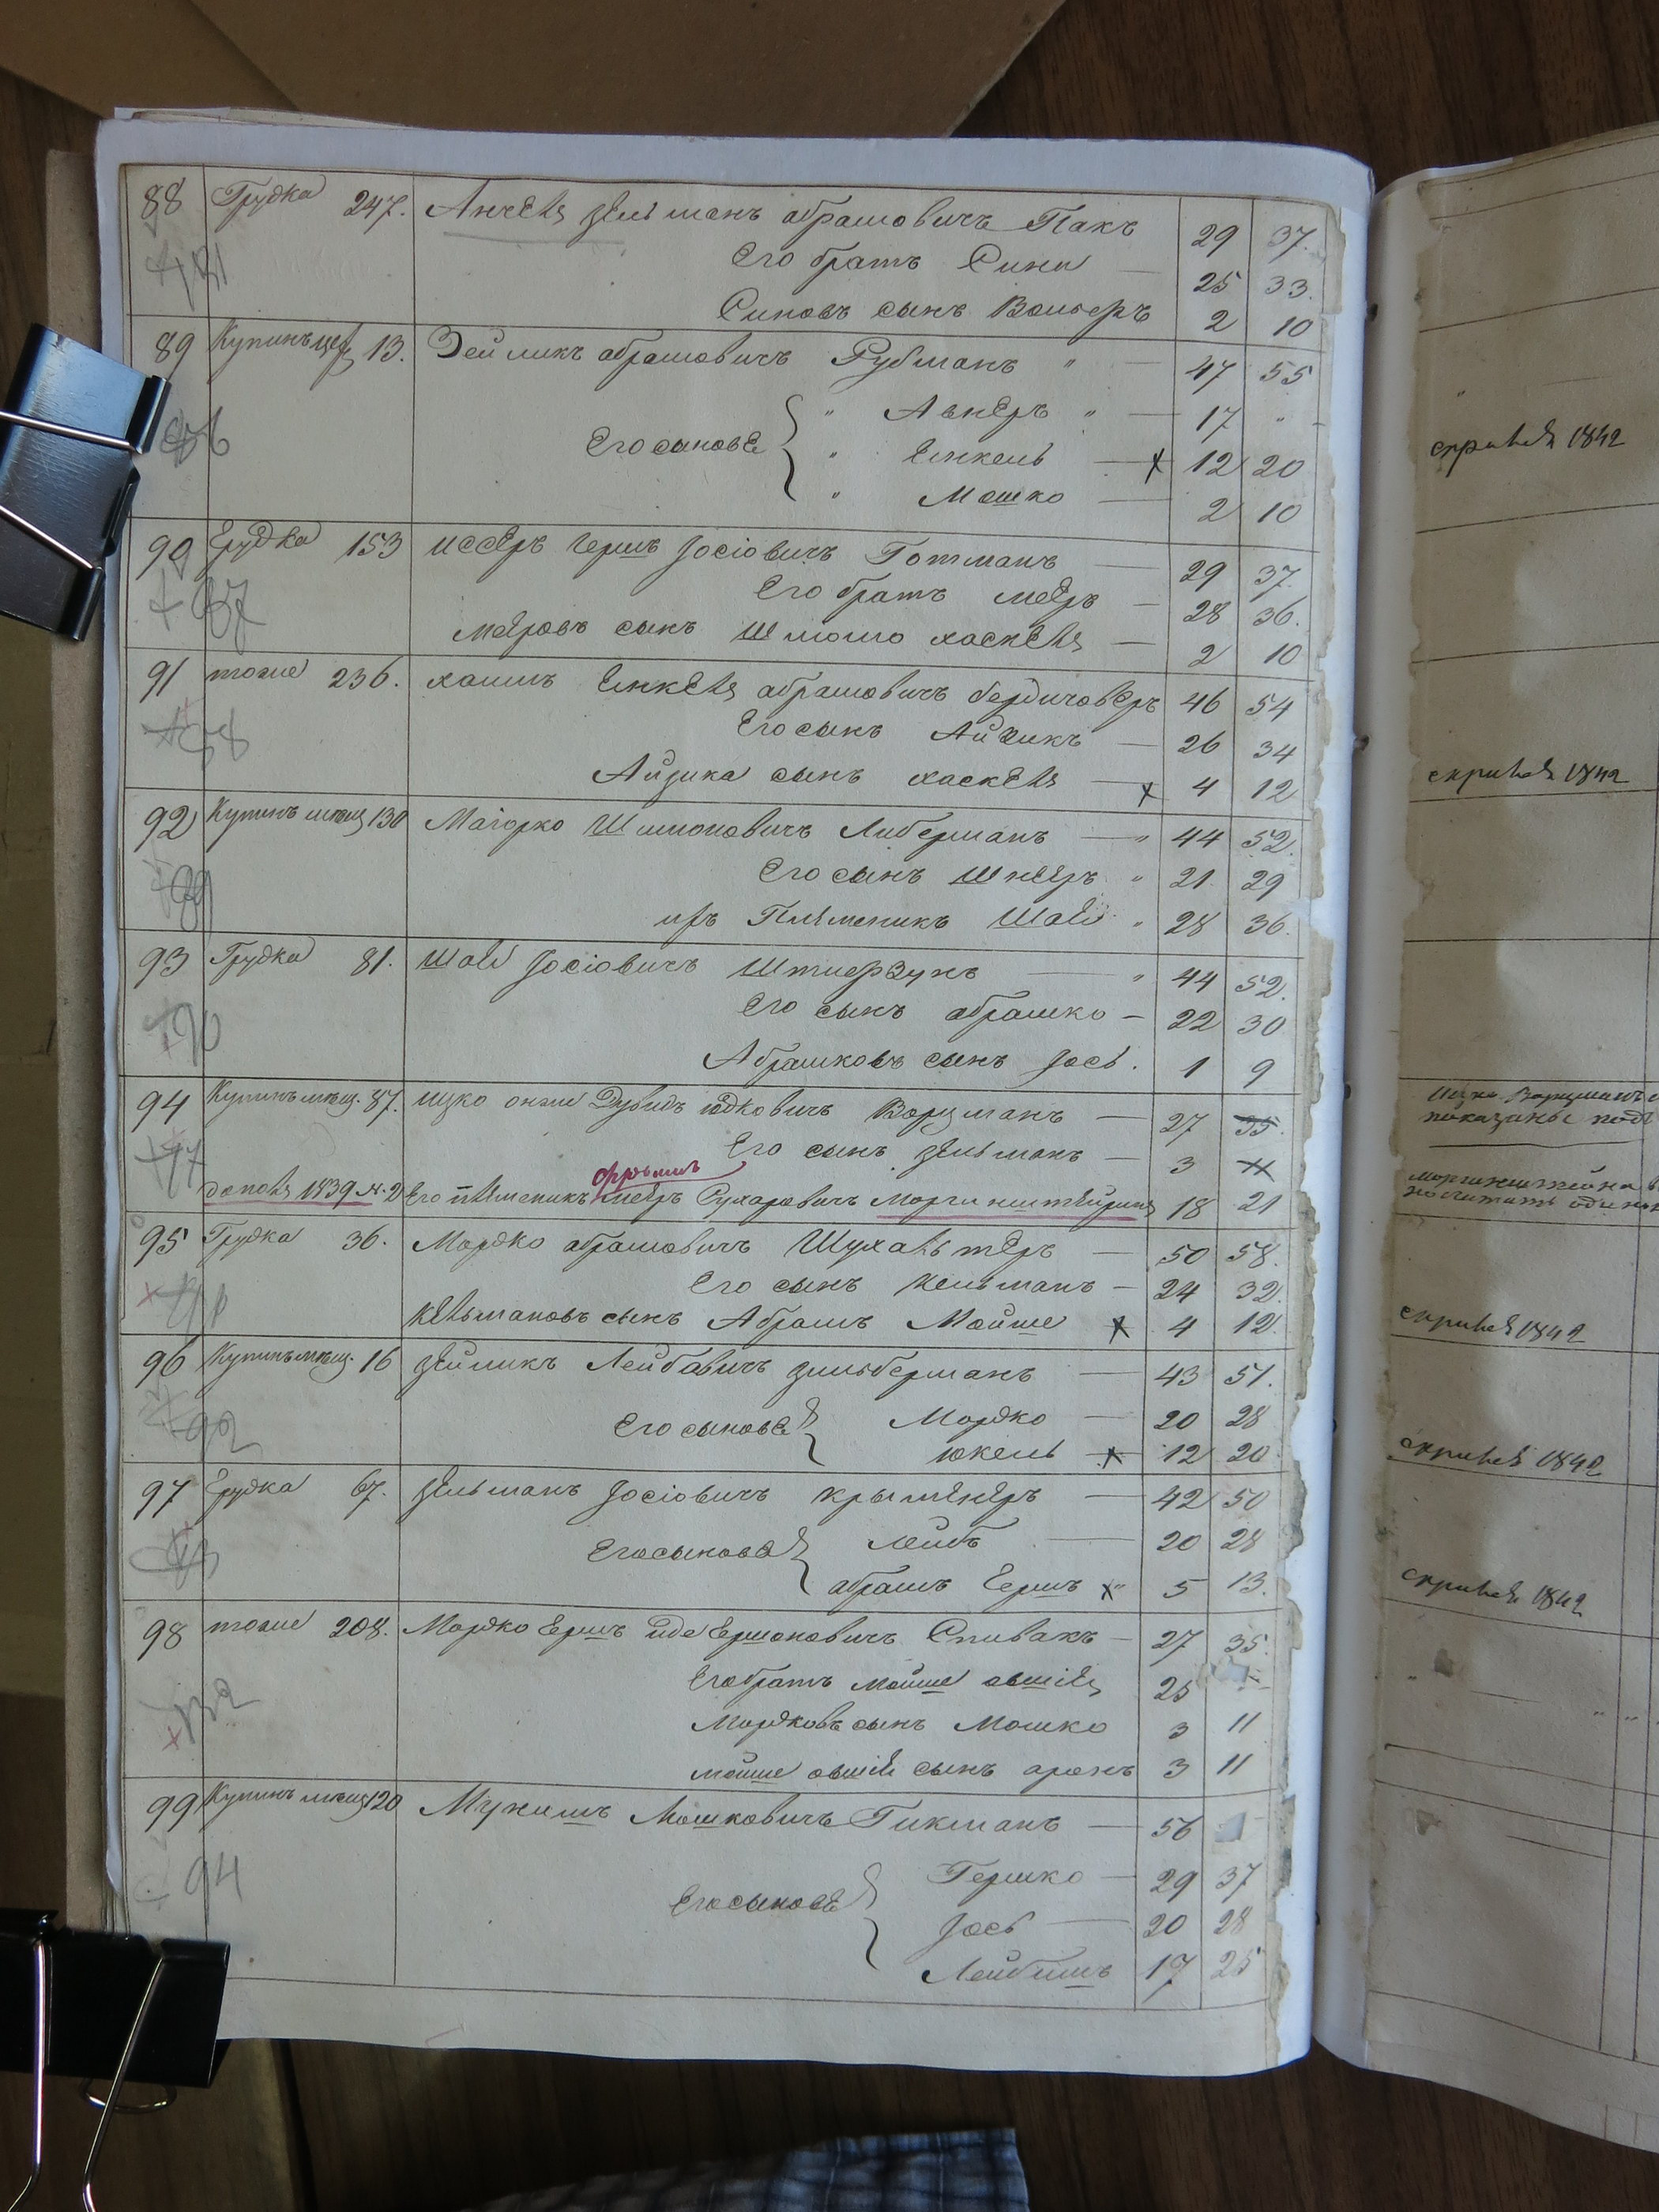 88 Грудка 247. Анчель Зельманъ Абрамовичъ Пакъ 29 37.
Его братъ Сина — 25 33.
Синовъ сынъ Вольфръ 2 10
89 13. Зейликъ Абрамовичъ Рубманъ " — 47 55
" Авнеръ " — 17 "
Его сыновѣ " Емкель — х 12 20
" Мошко — 2 10
90 Грудка 153 Иссеръ Гершъ Іосіовичъ Готманъ — 29 37.
87 Его братъ Меѣръ — 28 36.
Меѣровъ сынъ Шмомо Хаскель — 2 10
91 тоже 236. Хаимъ Емкель Абрамовичъ Бердичовѣръ 46 54
88 Его сынъ Айзикъ — 26 34
Айзика сынъ Хаскель — х 4 12
92 Купинъ мѣщ 130 Магорко Шмоновичъ Либерманъ — " 44 52.
89 Его сынъ Шнееръ " 21 29
ихъ Племеникъ Шаѣ " 28 36.
93 Грудка 81. Шаѣ Іосіовичъ — " 44 52.
90 Его сынъ Абрашко — 22 30
Абрашковъ сынъ Іось. 1 9
94 Купинъ мѣщ. 87. Ицко онже Дувидъ Юдковичъ Ворцманъ — 27 35.
Его сынъ Зельманъ — 3 11
Фроимъ
дополн 1839 № 2 Его племеникъ Меѣръ Сухаровичъ Моргинштейрнъ 18 21
95 Грудка 36. Мордко Абрамовичъ Шухальтеръ — 50 58.
Его сынъ Кельманъ — 24 32.
Кельмановъ сынъ Абрамъ Мойше х 4 12.
96 Купинъ мѣщ. 16 Зейликъ Лейбовичъ Зильберманъ — 43 51.
92 Его сыновѣ Мордко — 20 28
Юкель х 12 20
97 Грудка 67. Зельманъ Іосіовичъ Крытенеръ — 42 50
Его сыновѣ Лейбъ — 20 28
Абрамъ Гершъ х " 5 13.
98 тоже 208. Мордко Гершъ Иде Гершоновичъ Спивакъ — 27 35.
Его братъ Мойше Овшій 25
Мордковъ сынъ Мошко 3 11
Мойше Овшія сынъ Аронъ 3 11
99 Купинъ мѣщ 120 Мунишъ Мошковичъ Гикманъ — 56
94 Гершко — 29 37
Его сыновѣ Іось — 20 28
Лейбишъ 17 25
скрылся 1842
скрылся 1842
Ицко Ворцманъ
показаны подъ
Моргинштейна
скрылся 1842
скрылся 1842
скрылся 1842